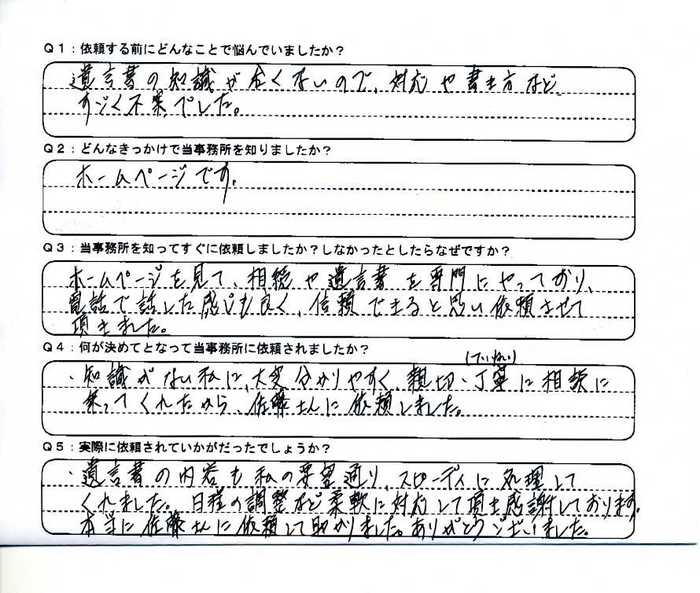 Q1：依頼する前にどんなことで悩んでいましたか？
遺言書の知識が全くないので、対応や書き方など、
すごく不安でした。
Q2：どんなきっかけで当事務所を知りましたか？
ホームページです。
Q3：当事務所を知ってすぐに依頼しましたか？しなかったとしたらなぜですか？
ホームページを見て、相続や遺言書を専門にやっており、
電話で話した感じも良く、信頼できると思い依頼させて
頂きました。
Q4：何が決めてとなって当事務所に依頼されましたか？
(ていねい)
・知識がない私に、大変分かりやすく、親切・丁寧に相談に
乗ってくれたから、佐藤さんに依頼しました。
Q5：実際に依頼されていかがだったでしょうか？
・遺言書の内容も私の要望通り、スピーディに処理して
くれました。日程の調整など柔軟に対応して頂き感謝しております。
本当に佐藤さんに依頼して助かりました。ありがとうございました。